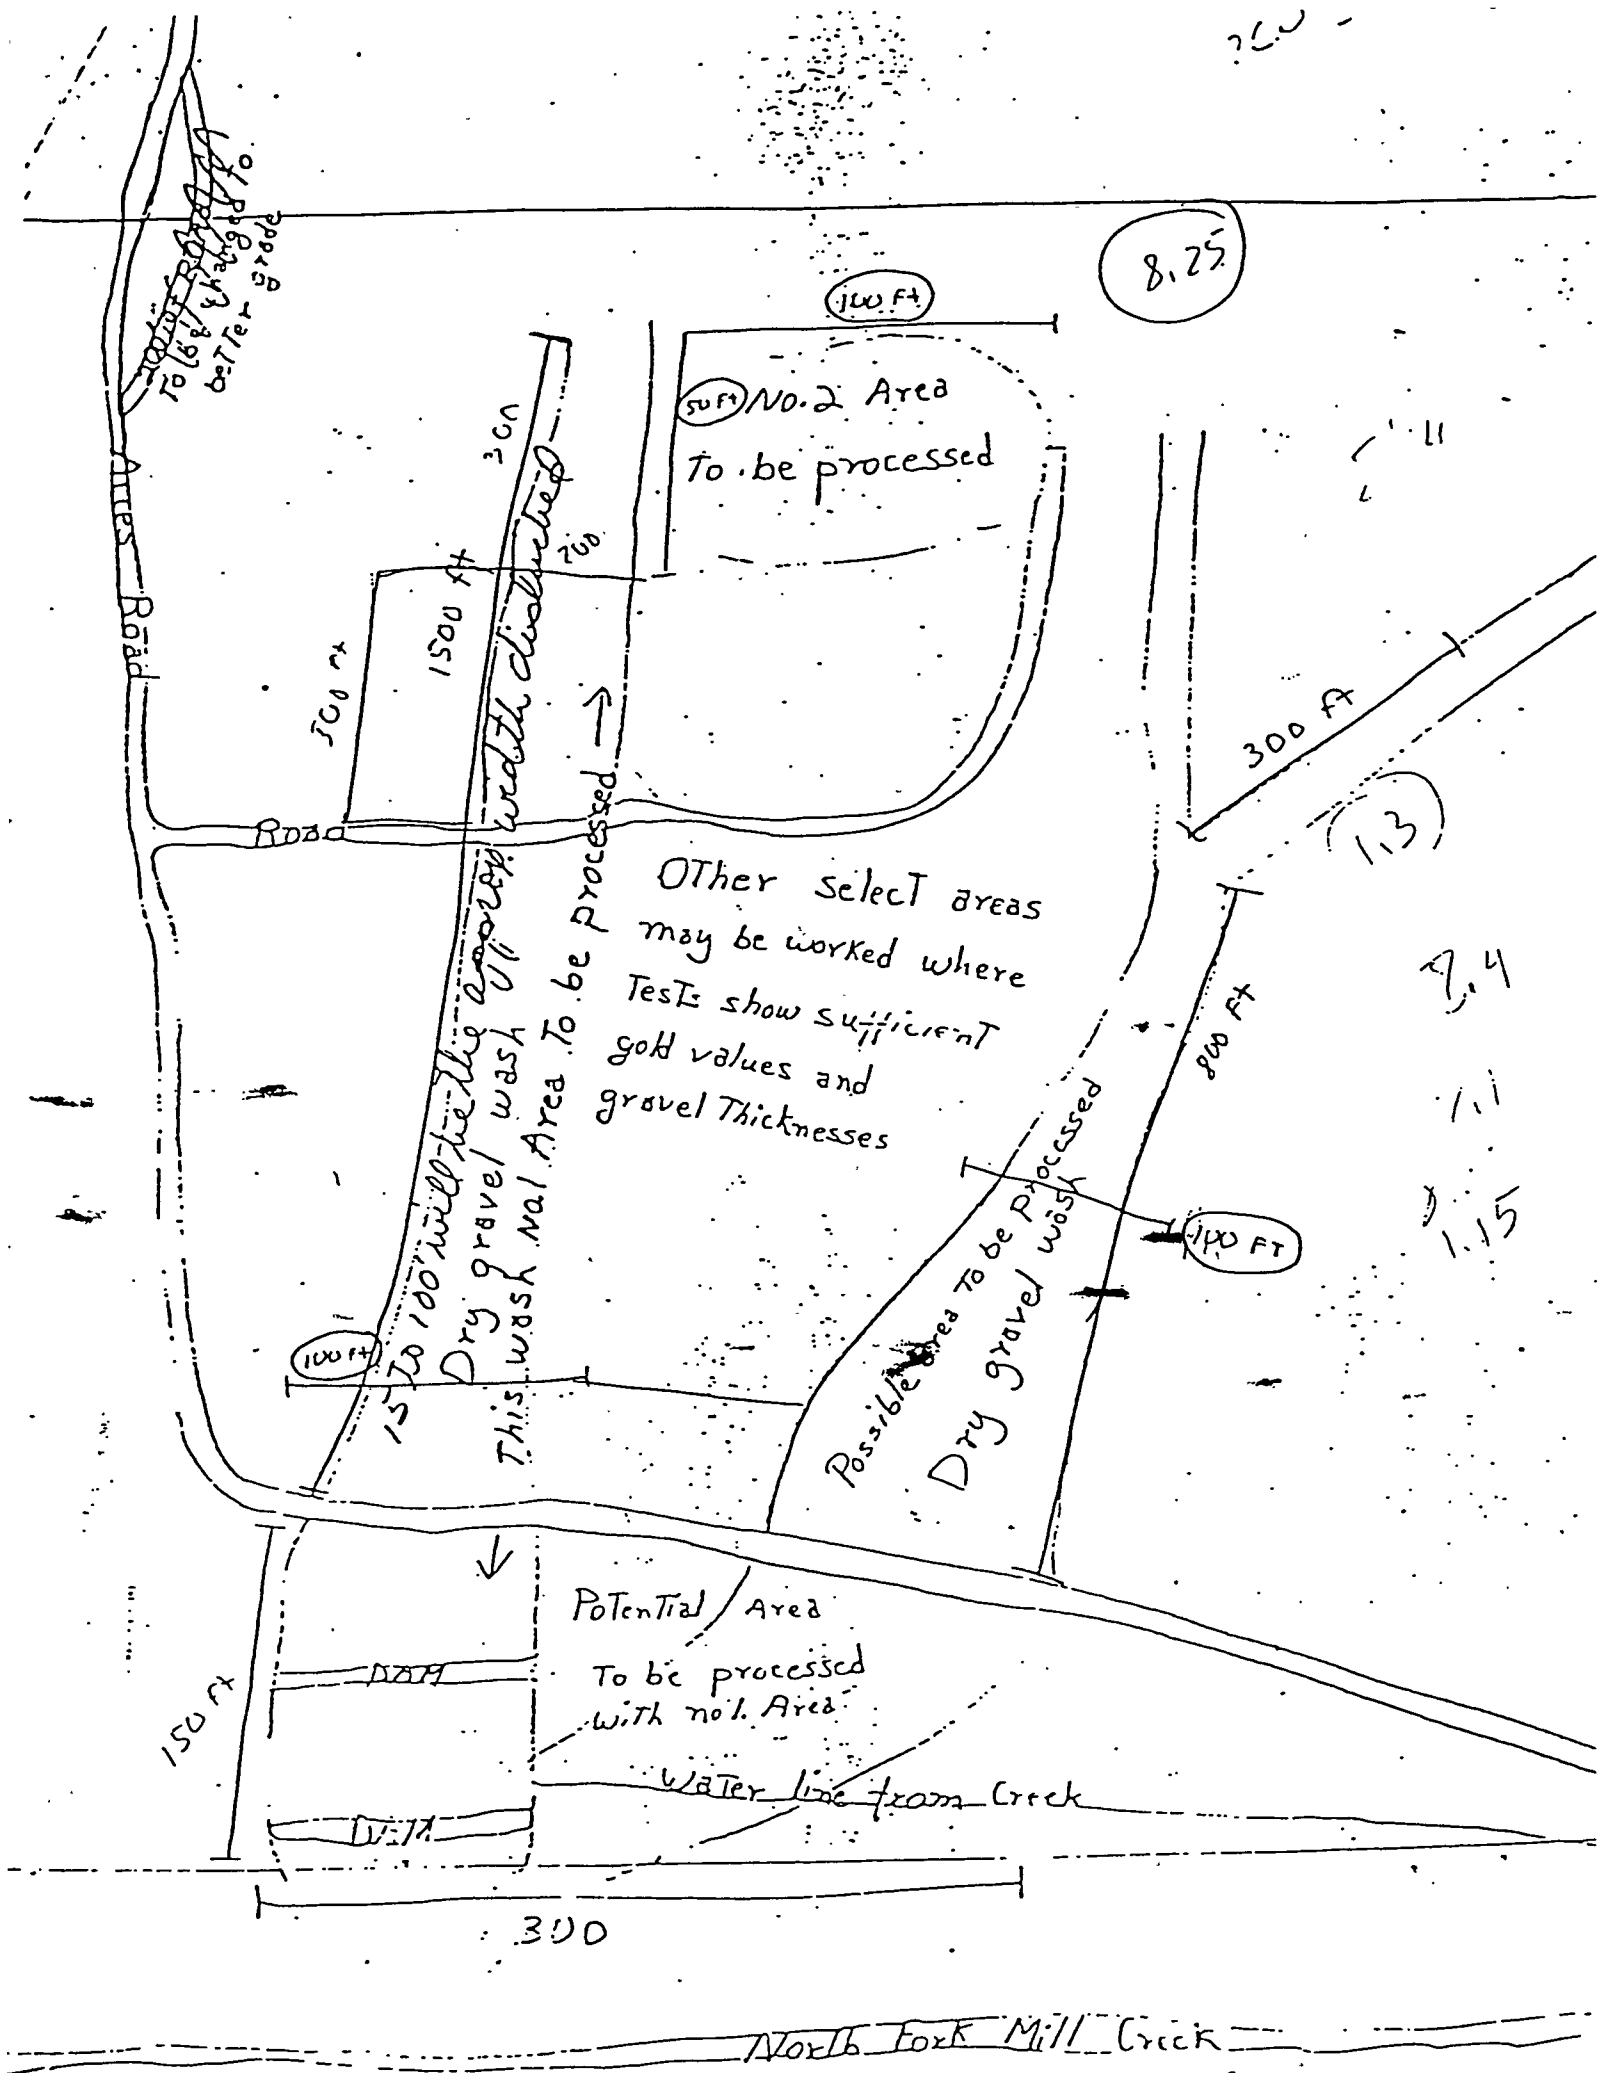 8.25
To be changed to
better grade
Acces Road
100 Ft
50 Ft
No.2 Area
To be processed
300
200
1500 ft
300 ft
300 ft
1.3
Road
15 To 100' will be the approx. width disturbed
Dry gravel wash
This wash No1 Area To be processed
Other select areas
may be worked where
Tests show sufficient
gold values and
gravel Thicknesses
.4
1.1
1.15
800 Ft
100 FT
Possible area To be processed
Dry gravel wash
100 ft
150 Ft
Potential Area
To be processed
with no1. Area
DAM
Water line from Creek
DAM
300
North Fork Mill Creek